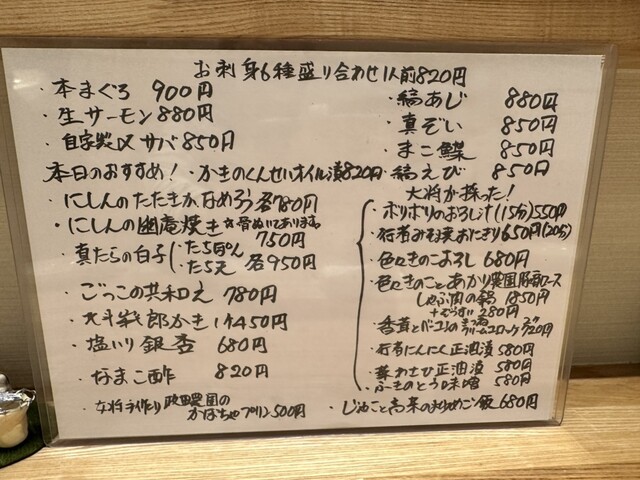 お刺身6種盛り合わせ1人前820円
・本まぐろ 900円
・生サーモン 880円
・自家製〆サバ 850円
本日のおすすめ！・かきのくんせいオイル漬820円
・にしんのたたきかなめろう各780円
・にしんの幽庵焼き
750円
・真たらの白子 たちぽん たち天 各950円
・ごっこの共和え 780円
かき 1ヶ450円
・塩いり銀杏 680円
・なまこ酢 820円
・女将手作り 農園の
かぼちゃプリン500円
・縞あじ 880円
・真ぞい 850円
・まこ鰈 850円
・縞えび 850円
大将が採った！
・ボリボリのおろし汁(15分)550円
・行者みそ焼おにぎり650円(20分)
・色々きのこおろし 680円
・色々きのことあかり農園豚肩ロース
しゃぶ肉の鍋 1850円
280円
クリームコロッケ 720円
・行者にんにく正油漬 580円
・葉わさび正油漬 580円
・ふきのとう味噌 580円
・じゃこと高菜の 飯 680円